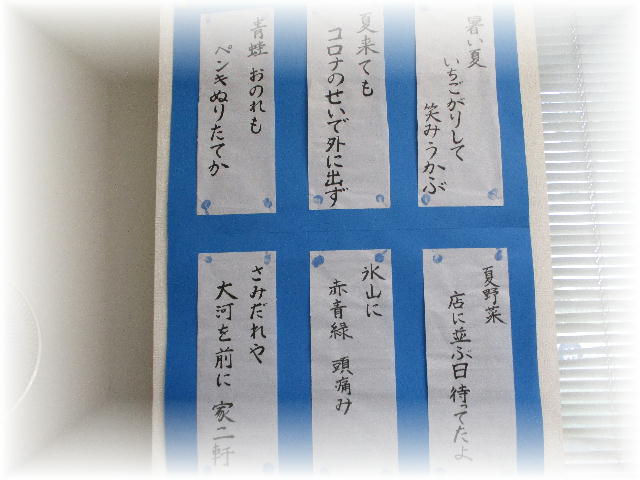 暑い夏
いちごがりして
笑みうかぶ
夏来ても
コロナのせいで外に出ず
青蛙 おのれも
ペンキぬりたてか
夏野菜
店に並ぶ日 待ってたよ
氷山に
赤青緑 頭痛み
さみだれや
大河を前に 家二軒